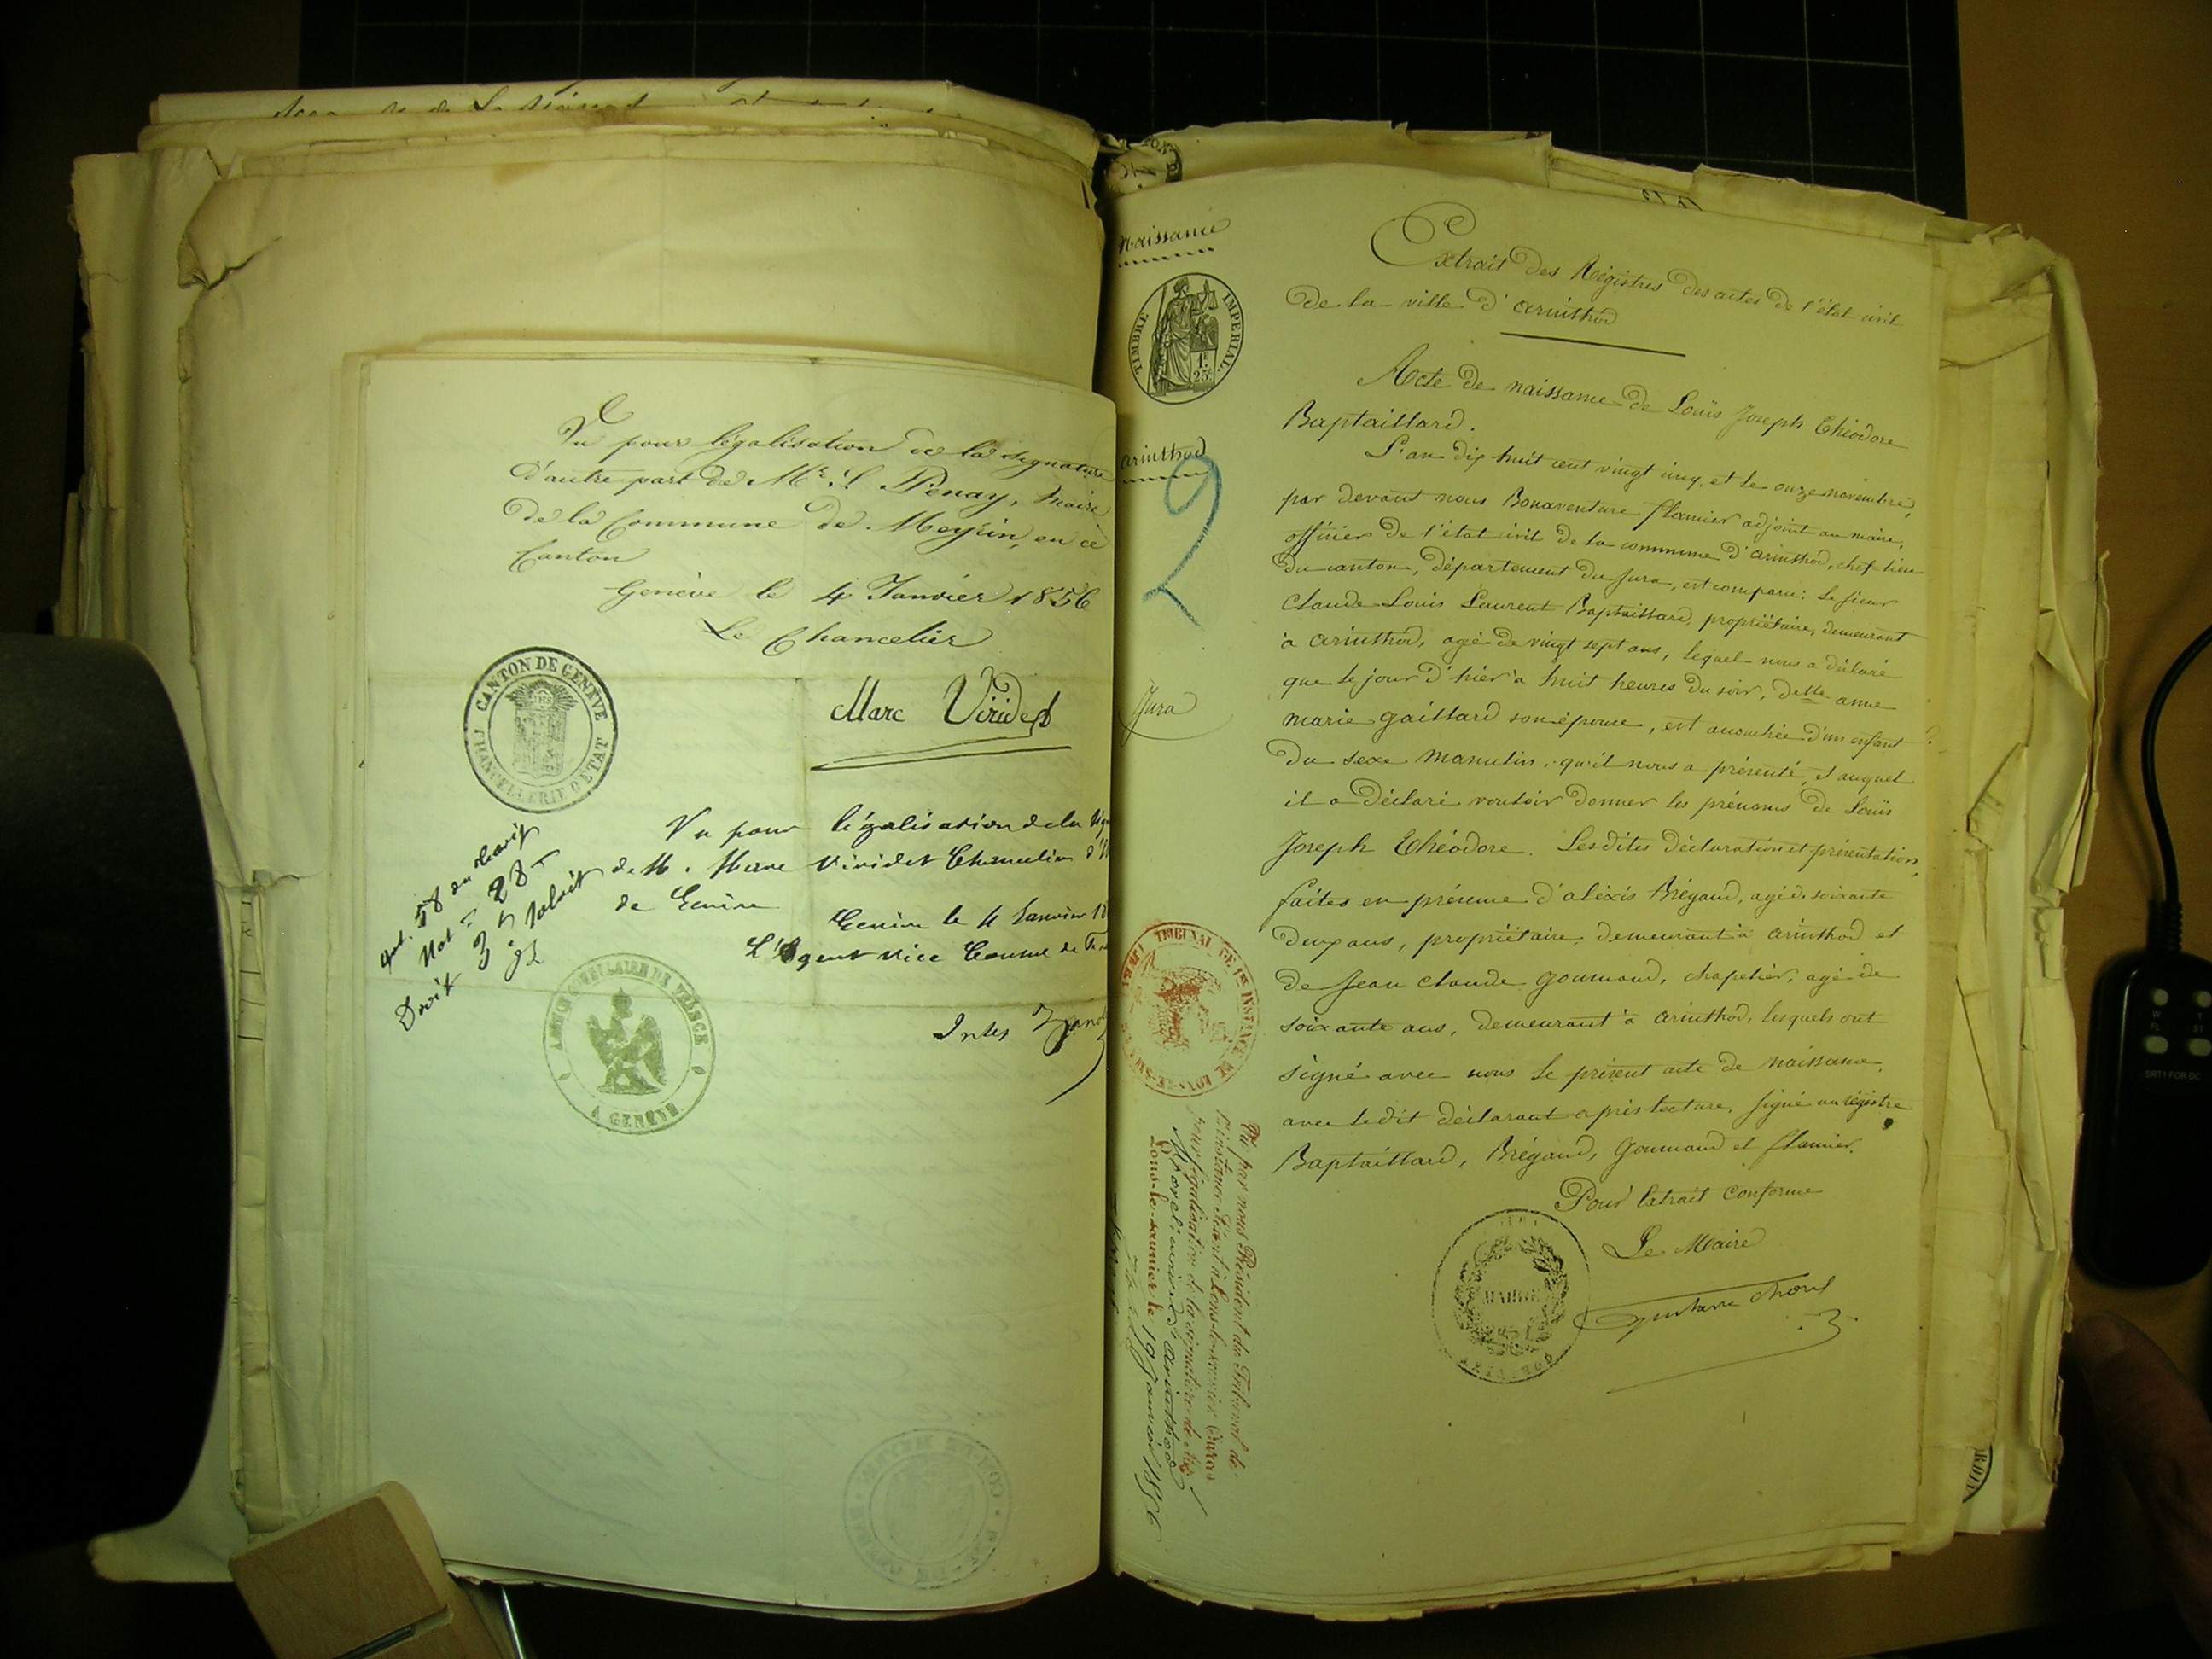 Vu pour légalisation de la signature
d'autre part de Mr. Penay, maire
de la Commune de Meyrin, en ce
Canton
Genève le 4 Janvier 1856
Le Chancelier
CANTON DE GENEVE
CHANCELLERIE D'ETAT
Marc Viridet
Vu pour légalisation de la
de M. Marc Viridet Chancelier
de Genève
Genève le 4 Janvier 18
L'Agent Vice Consul de
Droit 3
DE FRANCE
A GENEVE
naissance
TIMBRE IMPERIAL
1F.
25C
arinthod
2
Jura
TRIBUNAL DE 1RE INSTANCE DE LONS-LE-SAUNIER
Vu par nous Président du Tribunal de
1re instance séant à Lons-le-saunier (Jura)
pour légalisation de la signature de Mr
d'arinthod
Lons-le-saunier le 19 Janvier 1856
Extrait des Régistres des actes de l'état civil
de la ville d'arinthod
Acte de naissance de Louis Joseph Théodore
Baptaillard.
L'an dix huit cent vingt cinq, et le onze novembre,
par devant nous Bonaventure flamier adjoint au maire,
officier de l'état civil de la commune d'arinthod, chef lieu
du canton, département du Jura, est comparu: le sieur
Claude Louis Laurent Baptaillard, propriétaire, demeurant
à arinthod, agé de vingt sept ans, lequel nous a déclaré
que le jour d'hier à huit heures du soir, delle anne
marie gaillard son épouse, est accouchée d'un enfant
du sexe masculin, qu'il nous a présenté, et auquel
il a déclaré vouloir donner les prénoms de Louis
Joseph Théodore. Lesdites déclaration et présentation,
faites en présence d'aléxis Brégand, agé de soixante
deux ans, propriétaire, demeurant à arinthod et
de Jean Claude Goumand, chapelier, agé de
soixante ans, demeurant à arinthod, lesquels ont
signé avec nous le présent acte de naissance,
avec le dit déclarant après lecture, signé au régistre
Baptaillard, Brégand, Goumand et flamier.
Pour Extrait conforme
Le Maire
MAIRIE